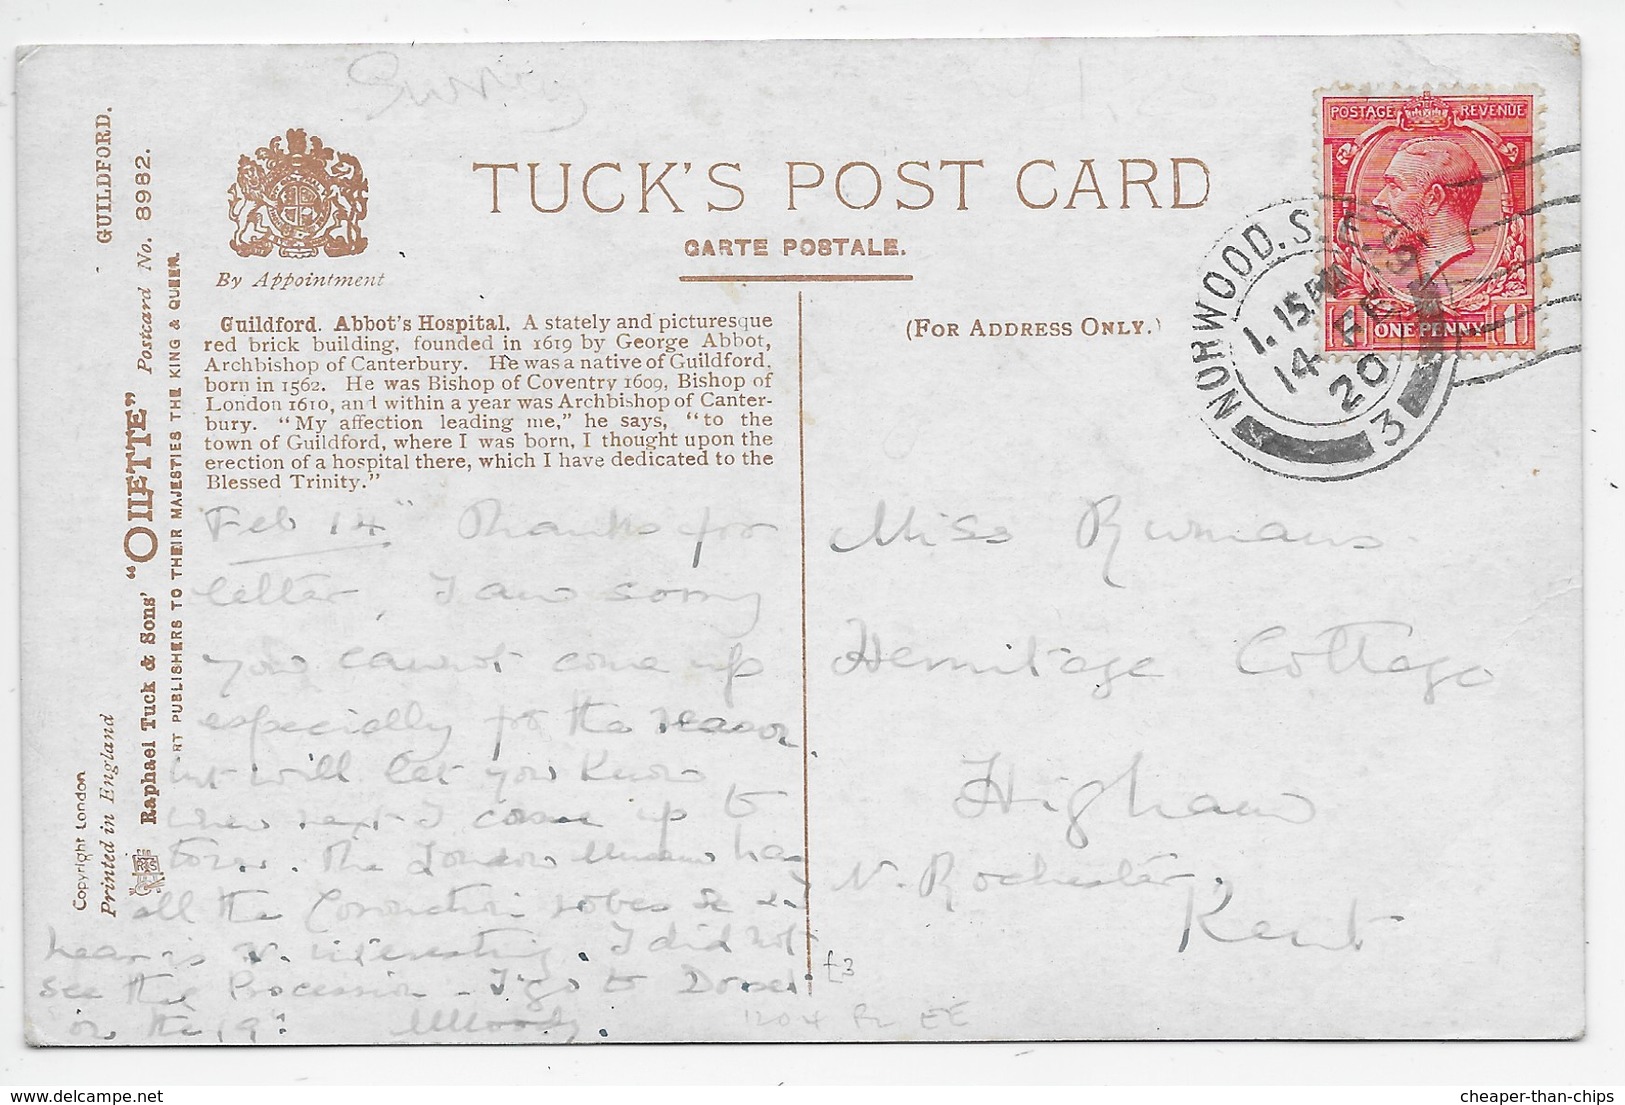 Surrey
GUILDFORD.
Postcard No. 8982.
"OILETTE"
Raphael Tuck & Sons'
ART PUBLISHERS TO THEIR MAJESTIES THE KING & QUEEN.
Copyright London
Printed in England
By Appointment
TUCK'S POST CARD
CARTE POSTALE.
(FOR ADDRESS ONLY.)
Guildford. Abbot's Hospital. A stately and picturesque
red brick building, founded in 1619 by George Abbot,
Archbishop of Canterbury. He was a native of Guildford,
born in 1562. He was Bishop of Coventry 1609, Bishop of
London 1610, and within a year was Archbishop of Canter-
bury. "My affection leading me," he says, "to the
town of Guildford, where I was born, I thought upon the
erection of a hospital there, which I have dedicated to the
Blessed Trinity."
POSTAGE REVENUE
1 ONE PENNY 1
NORWOOD. S.E.
1.15 PM
14 FE
20
3
Feb 14" Thanks for
letter, I am sorry
you cannot come up
especially for the reason
but will let you know
when next I come up to
town. The London Museum has
all the Coronation robes &
hear is v. interesting. I did not
see the Procession - I go to Dorset
on the 19th
Miss
Hermitage Cottage
Higham
N. Rochester,
Kent
£3
1204 EE
cheaper-than-chips